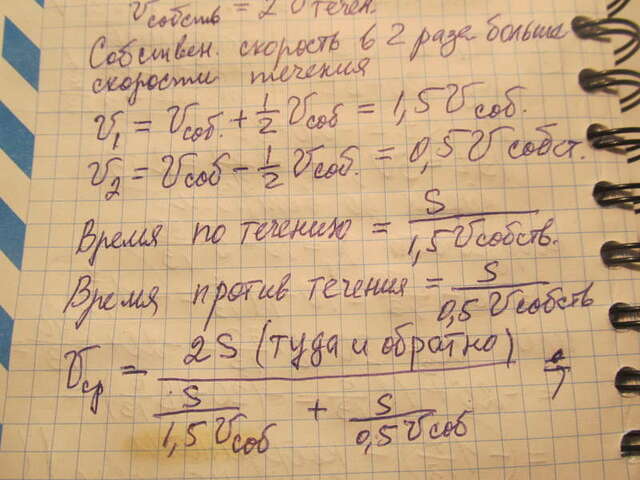 Vсобств = 2 Vтечен
Собствен. скорость в 2 раза больше
скорости течения
V₁ = Vсоб. + 1/2 Vсоб = 1,5 Vсоб.
V₂ = Vсоб - 1/2 Vсоб. = 0,5 Vсобст.
Время по течению = S / 1,5 Vсобств.
Время против течения = S / 0,5 Vсобств
Vср = 2S (туда и обратно) / (S / 1,5 Vсоб + S / 0,5 Vсоб)